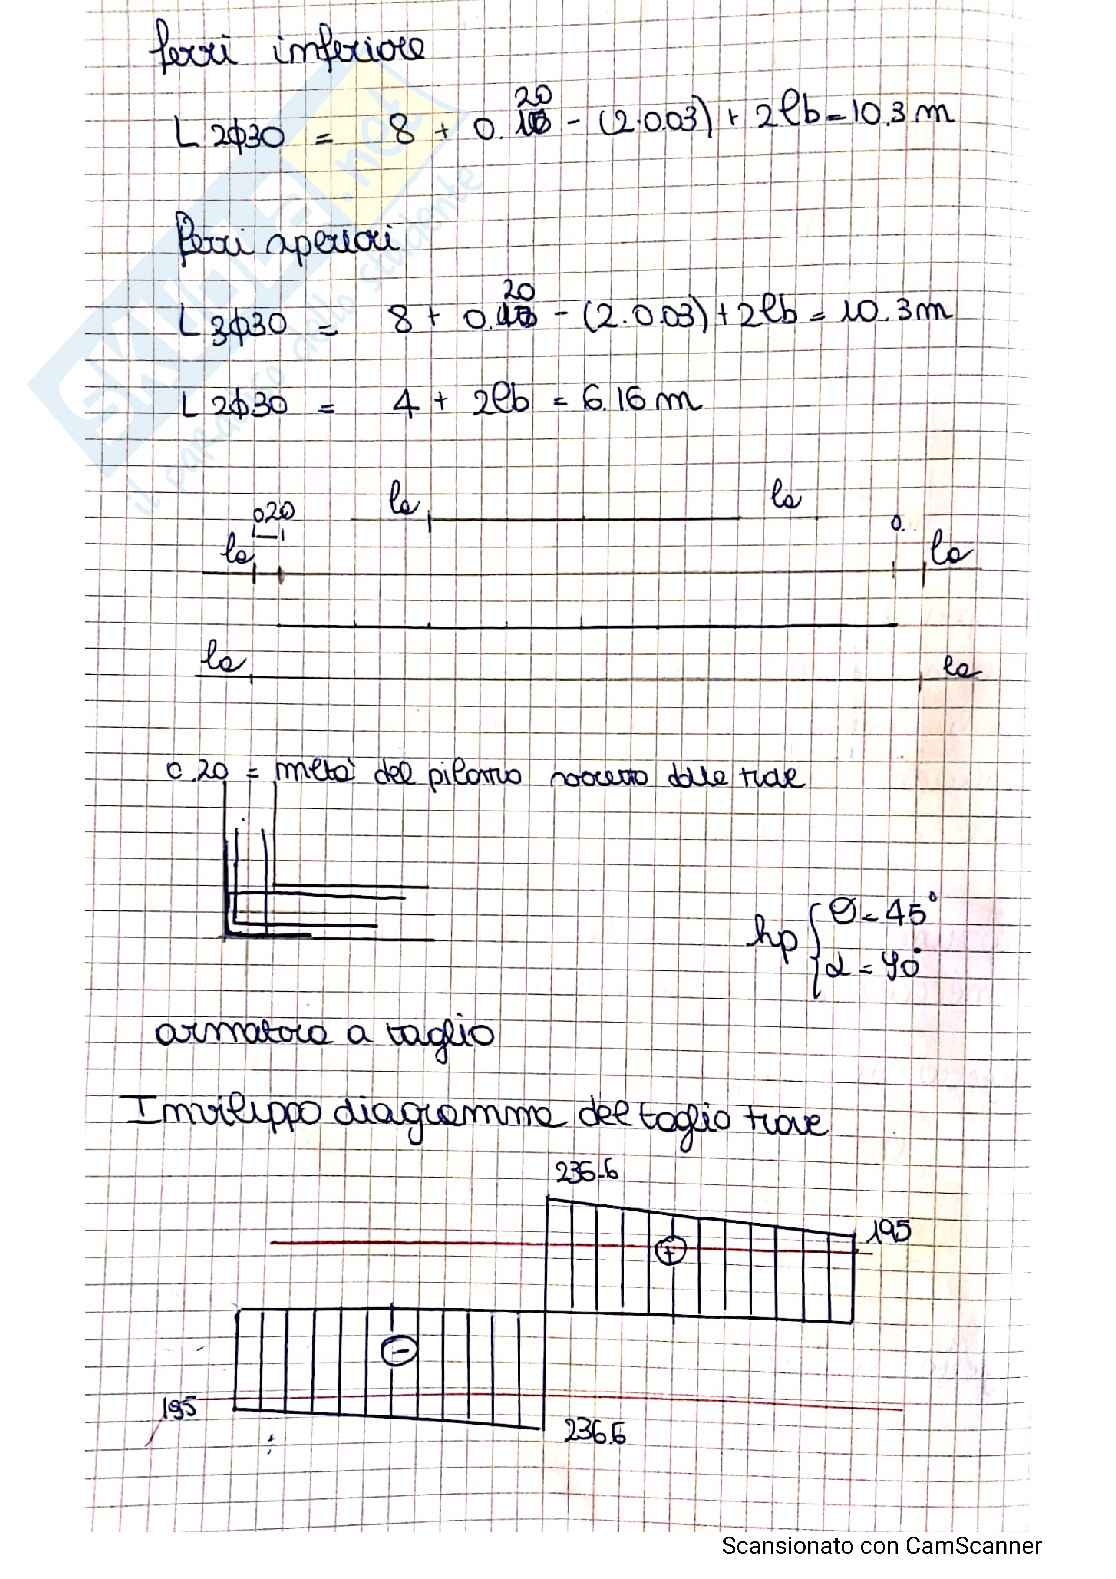 ferri inferiore
L 2ϕ30 = 8 + 0.20 - (2·0.03) + 2lb = 10.3 m
ferri aperiori
L 3ϕ30 = 8 + 0.20 - (2·0.03) + 2lb = 10.3 m
L 2ϕ30 = 4 + 2lb = 6.16 m
la la
020 0.
la la
la la
0.20 = metà del pilastro nocceto dalle trave
hp { θ = 45°
α = 90°
armatura a taglio
Inviluppo diagramma del taglio trave
236.6
195
+
-
195
236.6
SKUOLA.net
il paradiso dello studente
Scansionato con CamScanner